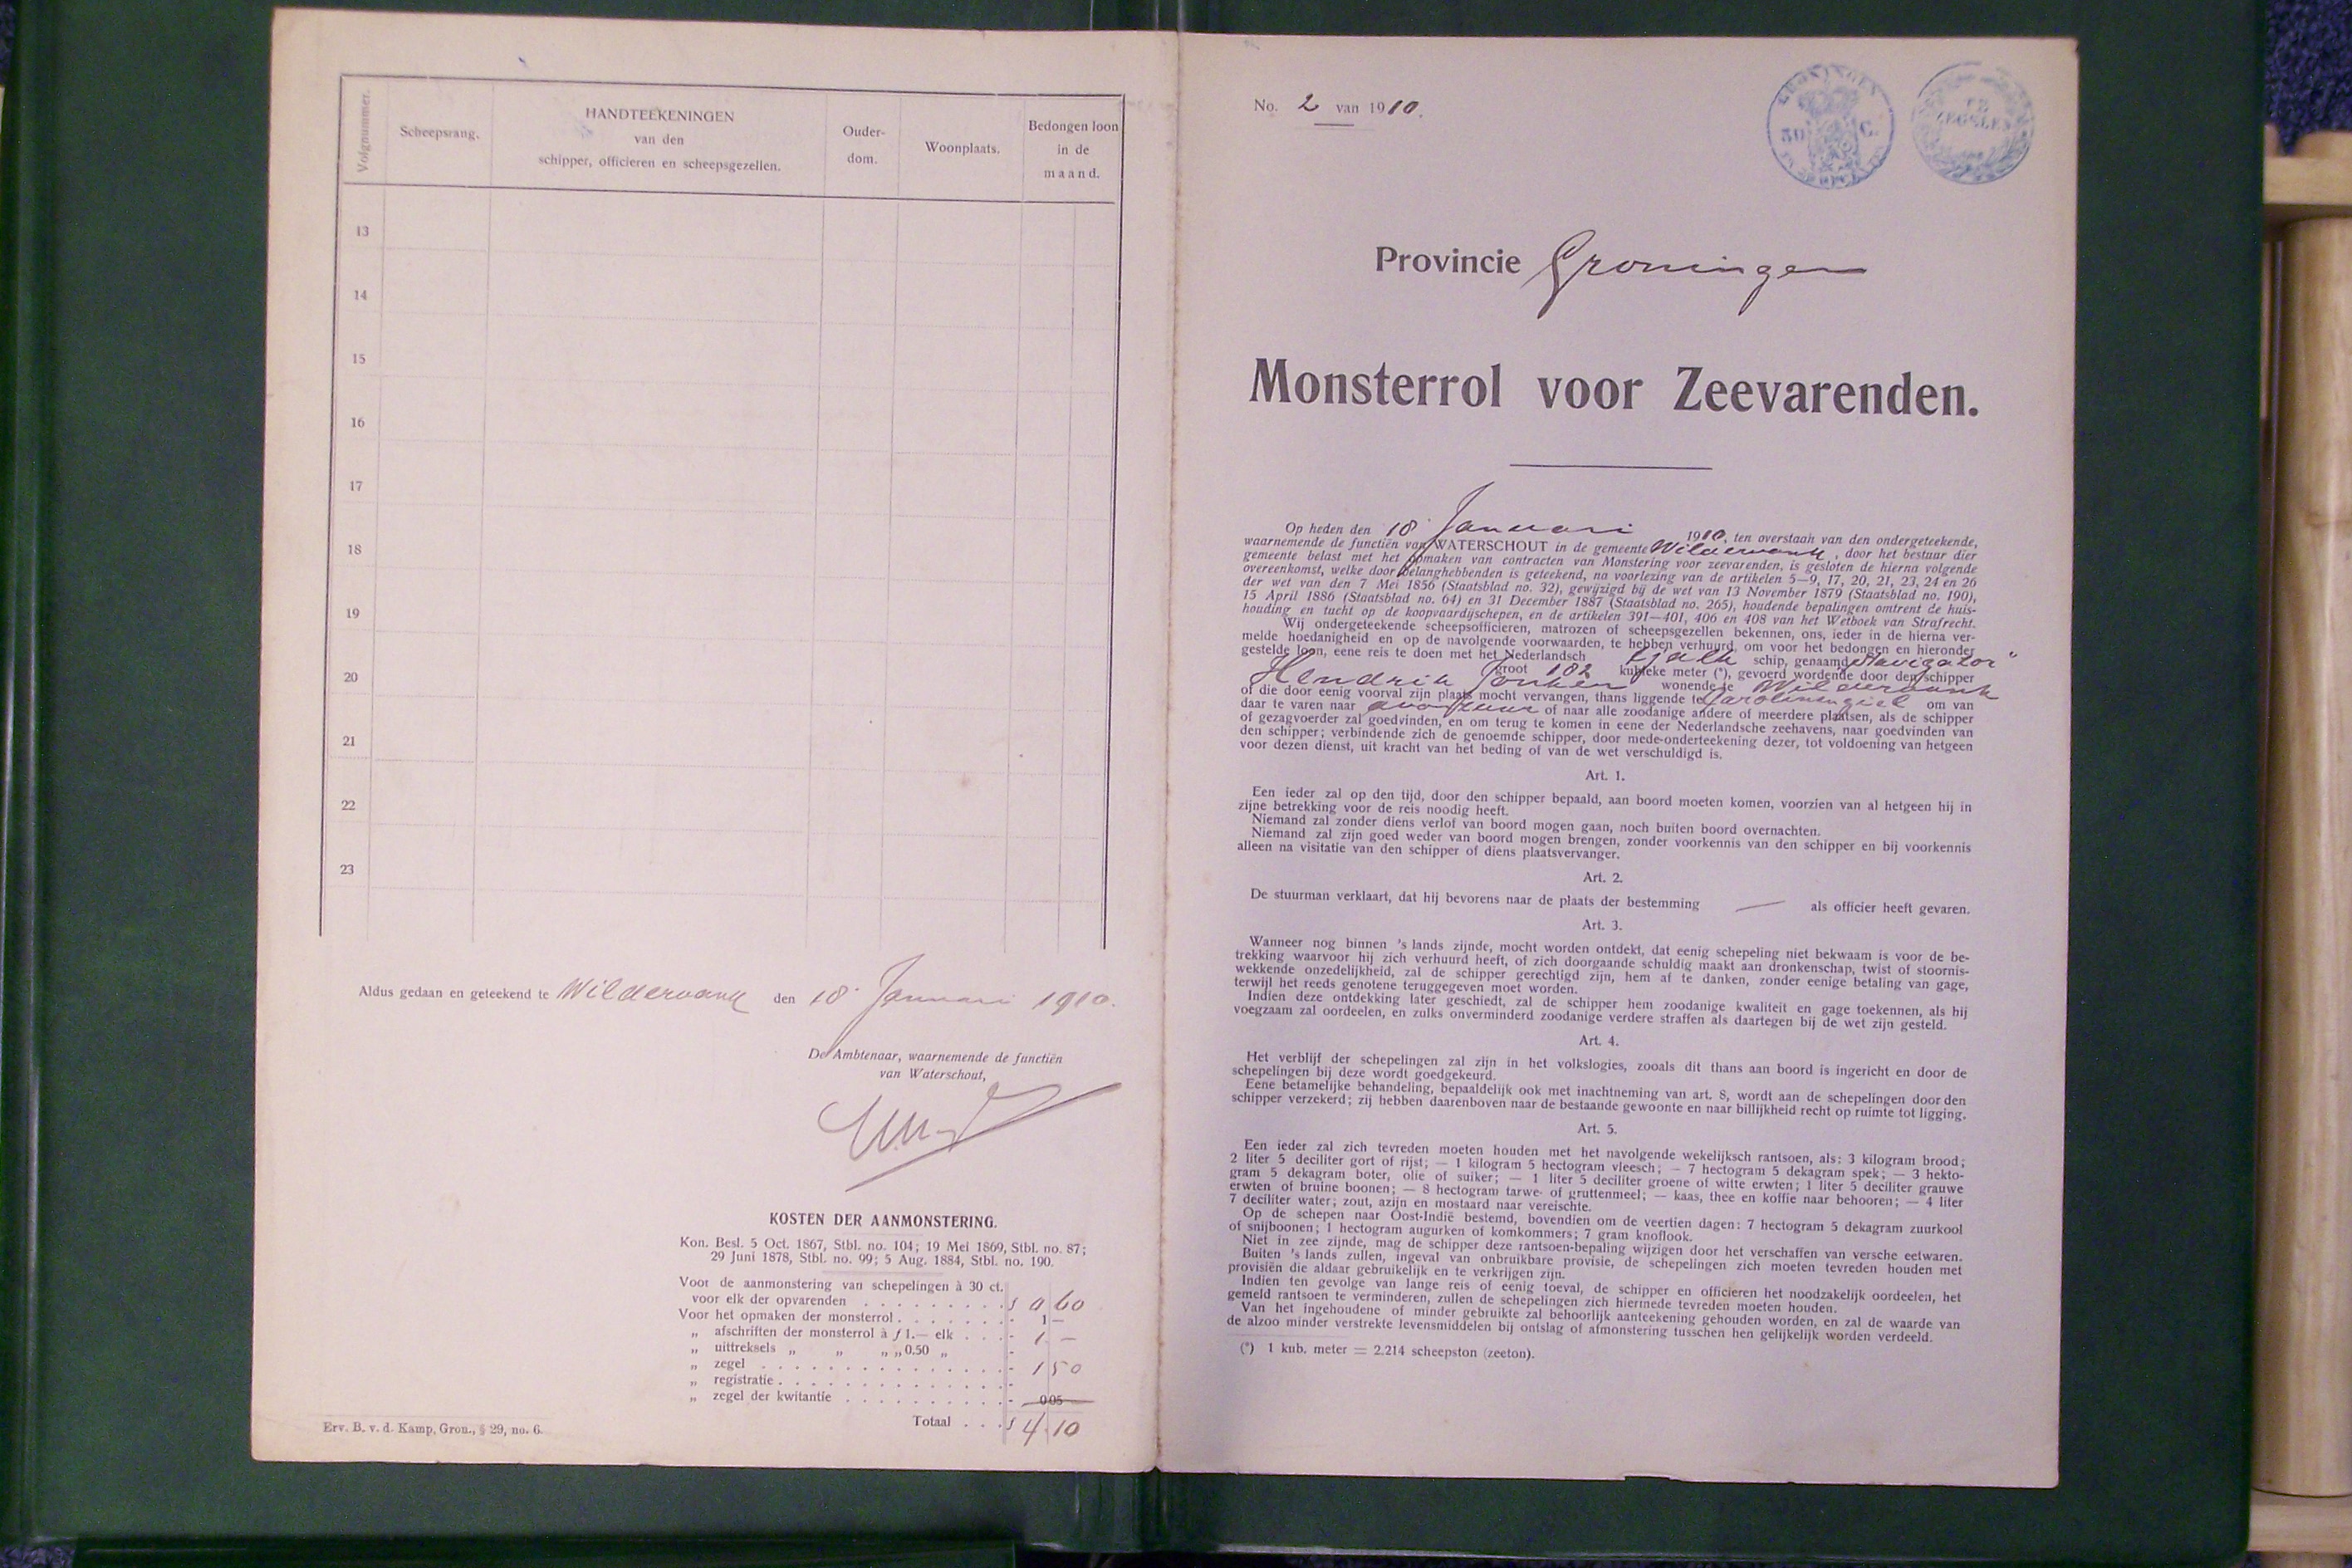 Volgnummer.
Scheepsrang.
HANDTEEKENINGEN
van den
schipper, officieren en scheepsgezellen.
Ouder-
dom.
Woonplaats.
Bedongen loon
in de
maand.
13
14
15
16
17
18
19
20
21
22
23
Aldus gedaan en geteekend te Wildervank den 18 Januari 1910.
De Ambtenaar, waarnemende de functiën
van Waterschout,
KOSTEN DER AANMONSTERING.
Kon. Besl. 5 Oct. 1867, Stbl. no. 104; 19 Mei 1869, Stbl. no. 87;
29 Juni 1878, Stbl. no. 99; 5 Aug. 1884, Stbl. no. 190.
Voor de aanmonstering van schepelingen à 30 ct.
voor elk der opvarenden . . . . . . . . . f 0 60
Voor het opmaken der monsterrol . . . . . . . - 1 —
„ afschriften der monsterrol à f 1.— elk . . . - 1 —
„ uittreksels „ „ „ „ 0.50 „ -
„ zegel . . . . . . . . . . . . . . . - 1 50
„ registratie . . . . . . . . . . . . . . -
„ zegel der kwitantie . . . . . . . . . . - 0 05
Totaal . . . f 4.10
Erv. B. v. d. Kamp, Gron., § 29, no. 6.
No. 2 van 1910.
GRONINGEN
50 C.
ZEGELEN
Provincie Groningen
Monsterrol voor Zeevarenden.
Op heden den 18 Januari 1910, ten overstaan van den ondergeteekende,
waarnemende de functiën van WATERSCHOUT in de gemeente Wildervank, door het bestuur dier
gemeente belast met het opmaken van contracten van Monstering voor zeevarenden, is gesloten de hierna volgende
overeenkomst, welke door belanghebbenden is geteekend, na voorlezing van de artikelen 5—9, 17, 20, 21, 23, 24 en 26
der wet van den 7 Mei 1856 (Staatsblad no. 32), gewijzigd bij de wet van 13 November 1879 (Staatsblad no. 190),
15 April 1886 (Staatsblad no. 64) en 31 December 1887 (Staatsblad no. 265), houdende bepalingen omtrent de huis-
houding en tucht op de koopvaardijschepen, en de artikelen 391—401, 406 en 408 van het Wetboek van Strafrecht.
Wij ondergeteekende scheepsofficieren, matrozen of scheepsgezellen bekennen, ons, ieder in de hierna ver-
melde hoedanigheid en op de navolgende voorwaarden, te hebben verhuurd, om voor het bedongen en hieronder
gestelde loon, eene reis te doen met het Nederlandsch tjalk schip, genaamd „Navigator"
groot 182 kubieke meter (*), gevoerd wordende door den schipper
Hendrik Jonker wonende te Wildervank
of die door eenig voorval zijn plaats mocht vervangen, thans liggende te Carolinensiel om van
daar te varen naar avontuur of naar alle zoodanige andere of meerdere plaatsen, als de schipper
of gezagvoerder zal goedvinden, en om terug te komen in eene der Nederlandsche zeehavens, naar goedvinden van
den schipper; verbindende zich de genoemde schipper, door mede-onderteekening dezer, tot voldoening van hetgeen
voor dezen dienst, uit kracht van het beding of van de wet verschuldigd is.
Art. 1.
Een ieder zal op den tijd, door den schipper bepaald, aan boord moeten komen, voorzien van al hetgeen hij in
zijne betrekking voor de reis noodig heeft.
Niemand zal zonder diens verlof van boord mogen gaan, noch buiten boord overnachten.
Niemand zal zijn goed weder van boord mogen brengen, zonder voorkennis van den schipper en bij voorkennis
alleen na visitatie van den schipper of diens plaatsvervanger.
Art. 2.
De stuurman verklaart, dat hij bevorens naar de plaats der bestemming — als officier heeft gevaren.
Art. 3.
Wanneer nog binnen 's lands zijnde, mocht worden ontdekt, dat eenig schepeling niet bekwaam is voor de be-
trekking waarvoor hij zich verhuurd heeft, of zich doorgaande schuldig maakt aan dronkenschap, twist of stoornis-
wekkende onzedelijkheid, zal de schipper gerechtigd zijn, hem af te danken, zonder eenige betaling van gage,
terwijl het reeds genotene teruggegeven moet worden.
Indien deze ontdekking later geschiedt, zal de schipper hem zoodanige kwaliteit en gage toekennen, als hij
voegzaam zal oordeelen, en zulks onverminderd zoodanige verdere straffen als daartegen bij de wet zijn gesteld.
Art. 4.
Het verblijf der schepelingen zal zijn in het volkslogies, zooals dit thans aan boord is ingericht en door de
schepelingen bij deze wordt goedgekeurd.
Eene betamelijke behandeling, bepaaldelijk ook met inachtneming van art. 8, wordt aan de schepelingen door den
schipper verzekerd; zij hebben daarenboven naar de bestaande gewoonte en naar billijkheid recht op ruimte tot ligging.
Art. 5.
Een ieder zal zich tevreden moeten houden met het navolgende wekelijksch rantsoen, als: 3 kilogram brood;
2 liter 5 deciliter gort of rijst; — 1 kilogram 5 hectogram vleesch; — 7 hectogram 5 dekagram spek; — 3 hekto-
gram 5 dekagram boter, olie of suiker; — 1 liter 5 deciliter groene of witte erwten; 1 liter 5 deciliter grauwe
erwten of bruine boonen; — 8 hectogram tarwe- of gruttenmeel; — kaas, thee en koffie naar behooren; — 4 liter
7 deciliter water; zout, azijn en mostaard naar vereischte.
Op de schepen naar Oost-Indië bestemd, bovendien om de veertien dagen: 7 hectogram 5 dekagram zuurkool
of snijboonen; 1 hectogram augurken of komkommers; 7 gram knoflook.
Niet in zee zijnde, mag de schipper deze rantsoen-bepaling wijzigen door het verschaffen van versche eetwaren.
Buiten 's lands zullen, ingeval van onbruikbare provisie, de schepelingen zich moeten tevreden houden met
provisiën die aldaar gebruikelijk en te verkrijgen zijn.
Indien ten gevolge van lange reis of eenig toeval, de schipper en officieren het noodzakelijk oordeelen, het
gemeld rantsoen te verminderen, zullen de schepelingen zich hiermede tevreden moeten houden.
Van het ingehoudene of minder gebruikte zal behoorlijk aanteekening gehouden worden, en zal de waarde van
de alzoo minder verstrekte levensmiddelen bij ontslag of afmonstering tusschen hen gelijkelijk worden verdeeld.
(*) 1 kub. meter = 2.214 scheepston (zeeton).